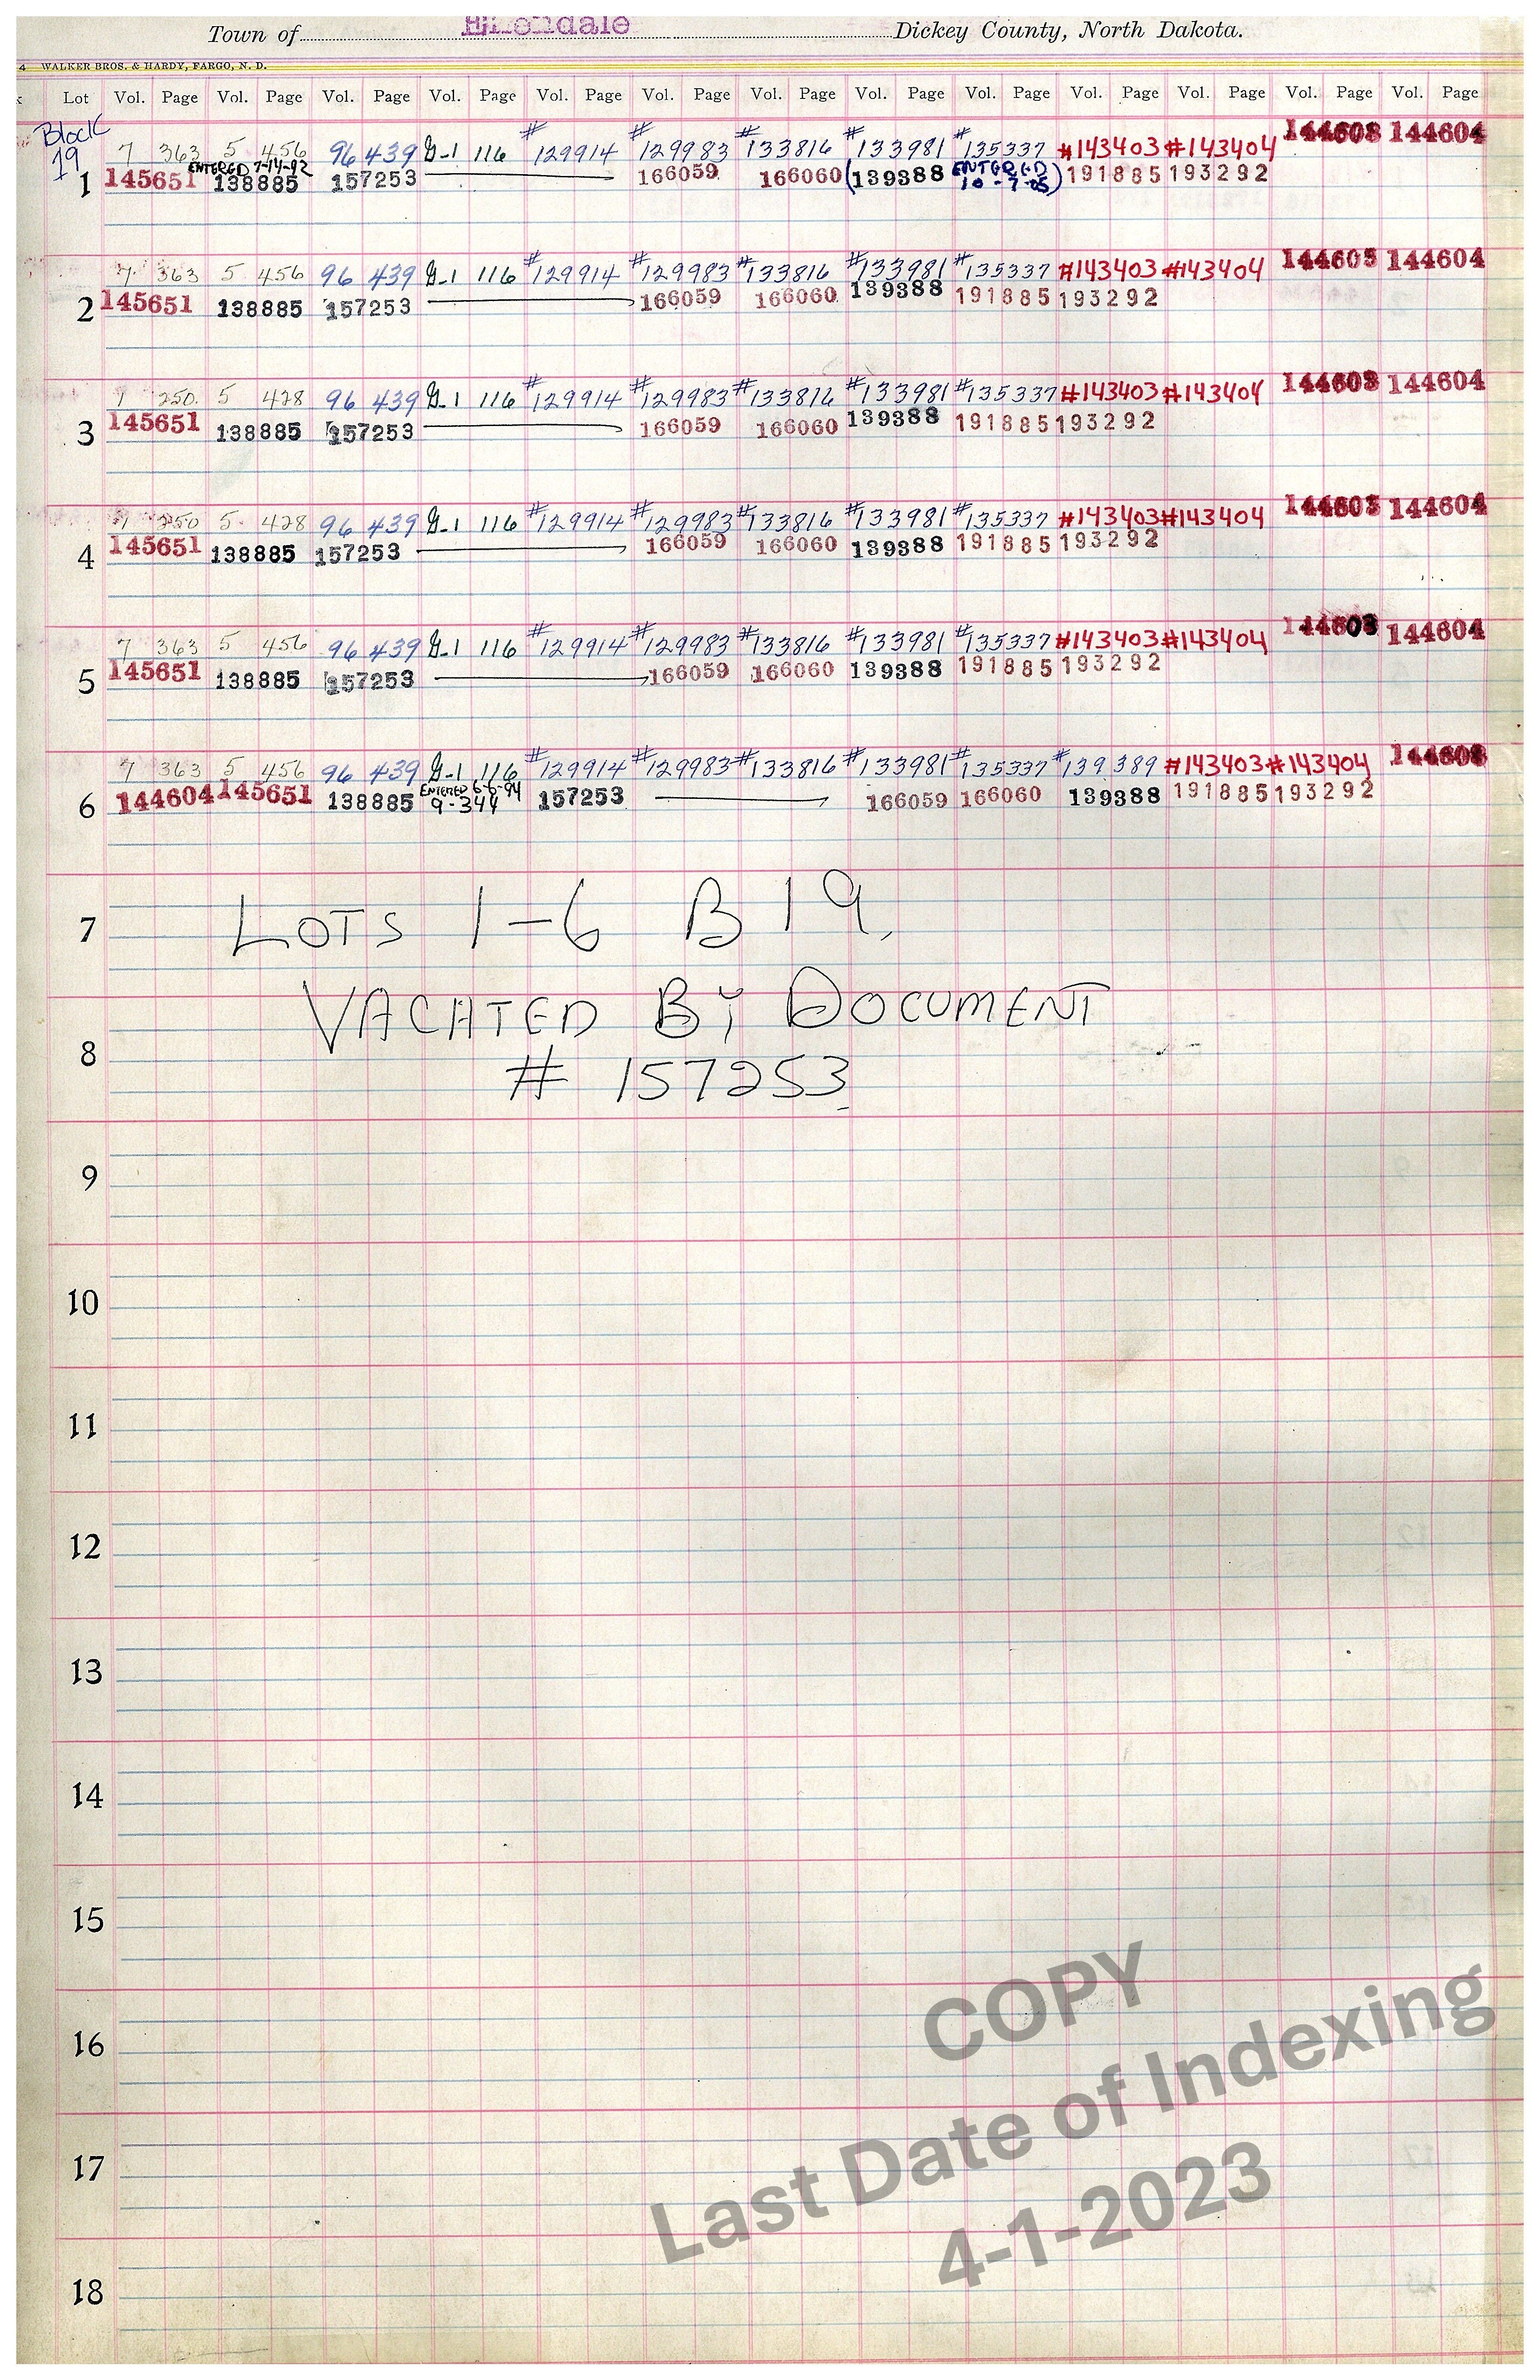 Town of Ellendale Dickey County, North Dakota.
4 WALKER BROS. & HARDY, FARGO, N. D.
k Lot Vol. Page Vol. Page Vol. Page Vol. Page Vol. Page Vol. Page Vol. Page Vol. Page Vol. Page Vol. Page Vol. Page Vol. Page Vol. Page
Block
19
7 363 5 456 96 439 G-1 116 #129914 129983 #133816 #133981 #135337 #143403 #143404 144603 144604
ENTERED 7-14-92
1 145651 138885 157253 166059 166060 (139388 ENTERED 10-7-05) 191885 193292
7 363 5 456 96 439 G-1 116 #129914 #129983 #133816 #133981 #135337 #143403 #143404 144603 144604
2 145651 138885 157253 166059 166060 139388 191885 193292
7 250 5 428 96 439 G-1 116 #129914 #129983 #133816 #133981 #135337 #143403 #143404 144603 144604
3 145651 138885 157253 166059 166060 139388 191885 193292
7 250 5 428 96 439 G-1 116 #129914 #129983 #133816 #133981 #135337 #143403 #143404 144603 144604
4 145651 138885 157253 166059 166060 139388 191885 193292
7 363 5 456 96 439 G-1 116 #129914 #129983 #133816 #133981 #135337 #143403 #143404 144603 144604
5 145651 138885 157253 166059 166060 139388 191885 193292
7 363 5 456 96 439 G-1 116 #129914 #129983 #133816 #133981 #135337 #139389 #143403 #143404 144603
ENTERED 6-6-94
6 144604 145651 138885 9-344 157253 166059 166060 139388 191885 193292
7 LOTS 1-6 B 19,
VACATED BY DOCUMENT
8
# 157253
9
10
11
12
13
14
15
16
17
18
COPY
Last Date of Indexing
4-1-2023